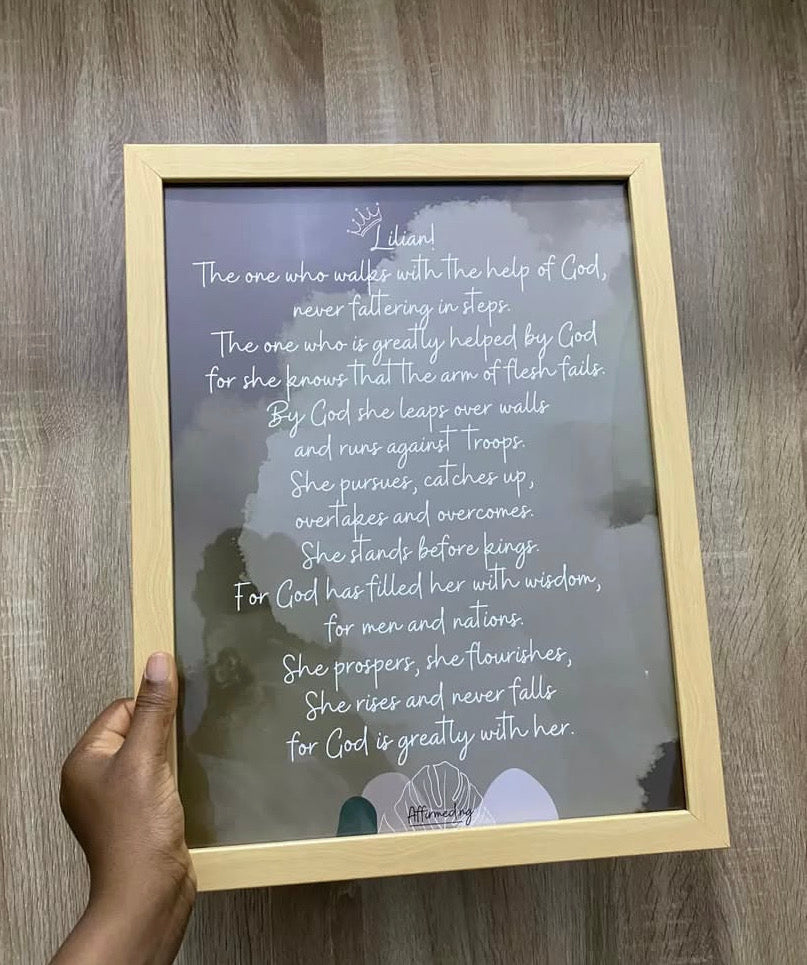 Lilian!
The one who walks with the help of God,
never faltering in steps.
The one who is greatly helped by God
for she knows that the arm of flesh fails.
By God she leaps over walls
and runs against troops.
She pursues, catches up,
overtakes and overcomes.
She stands before kings.
For God has filled her with wisdom,
for men and nations.
She prospers, she flourishes,
She rises and never falls
for God is greatly with her.
Affirmed.ng